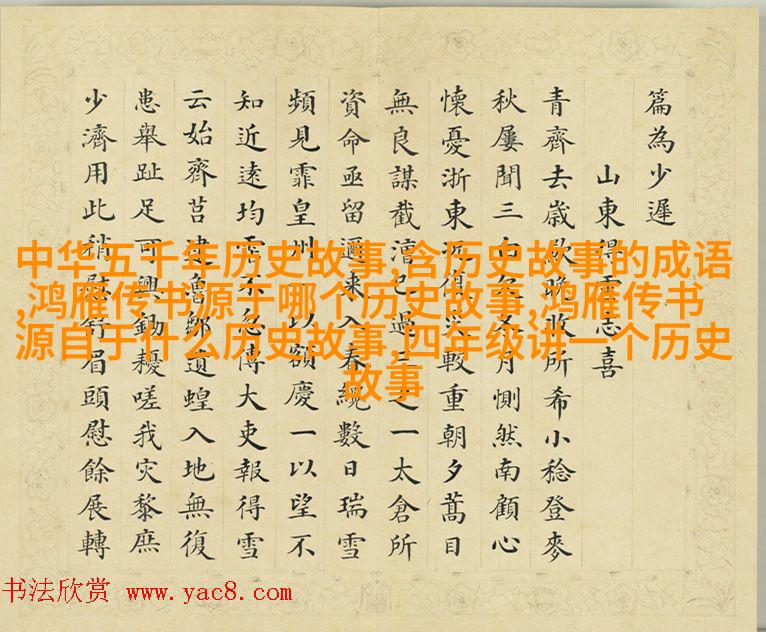 篇為少遲
山東得雪志喜
青齊去歲晚收所希小稔登麥
秋屢聞三月惻然南顧心
懷憂浙東災較重朝夕蒿目
無良謀截漕已過三之一太倉所
資命亟留邇來入春纔數日瑞雪
頻見霏皇州以額慶一以望不
知近遠均不忍傳大吏報得雪
云始齊莒逮魯鄒遺蝗入地無復
患舉趾足可興鋤耰嗟我灾黎庶
少濟用此稍慰舒眉頭慰餘展轉
中华五千年历史故事,含历史故事的成语
,鸿雁传书源于哪个历史故事,鸿雁传书
源自于什么历史故事,四年级讲一个历史
故事
书法欣赏 www.yac8.com